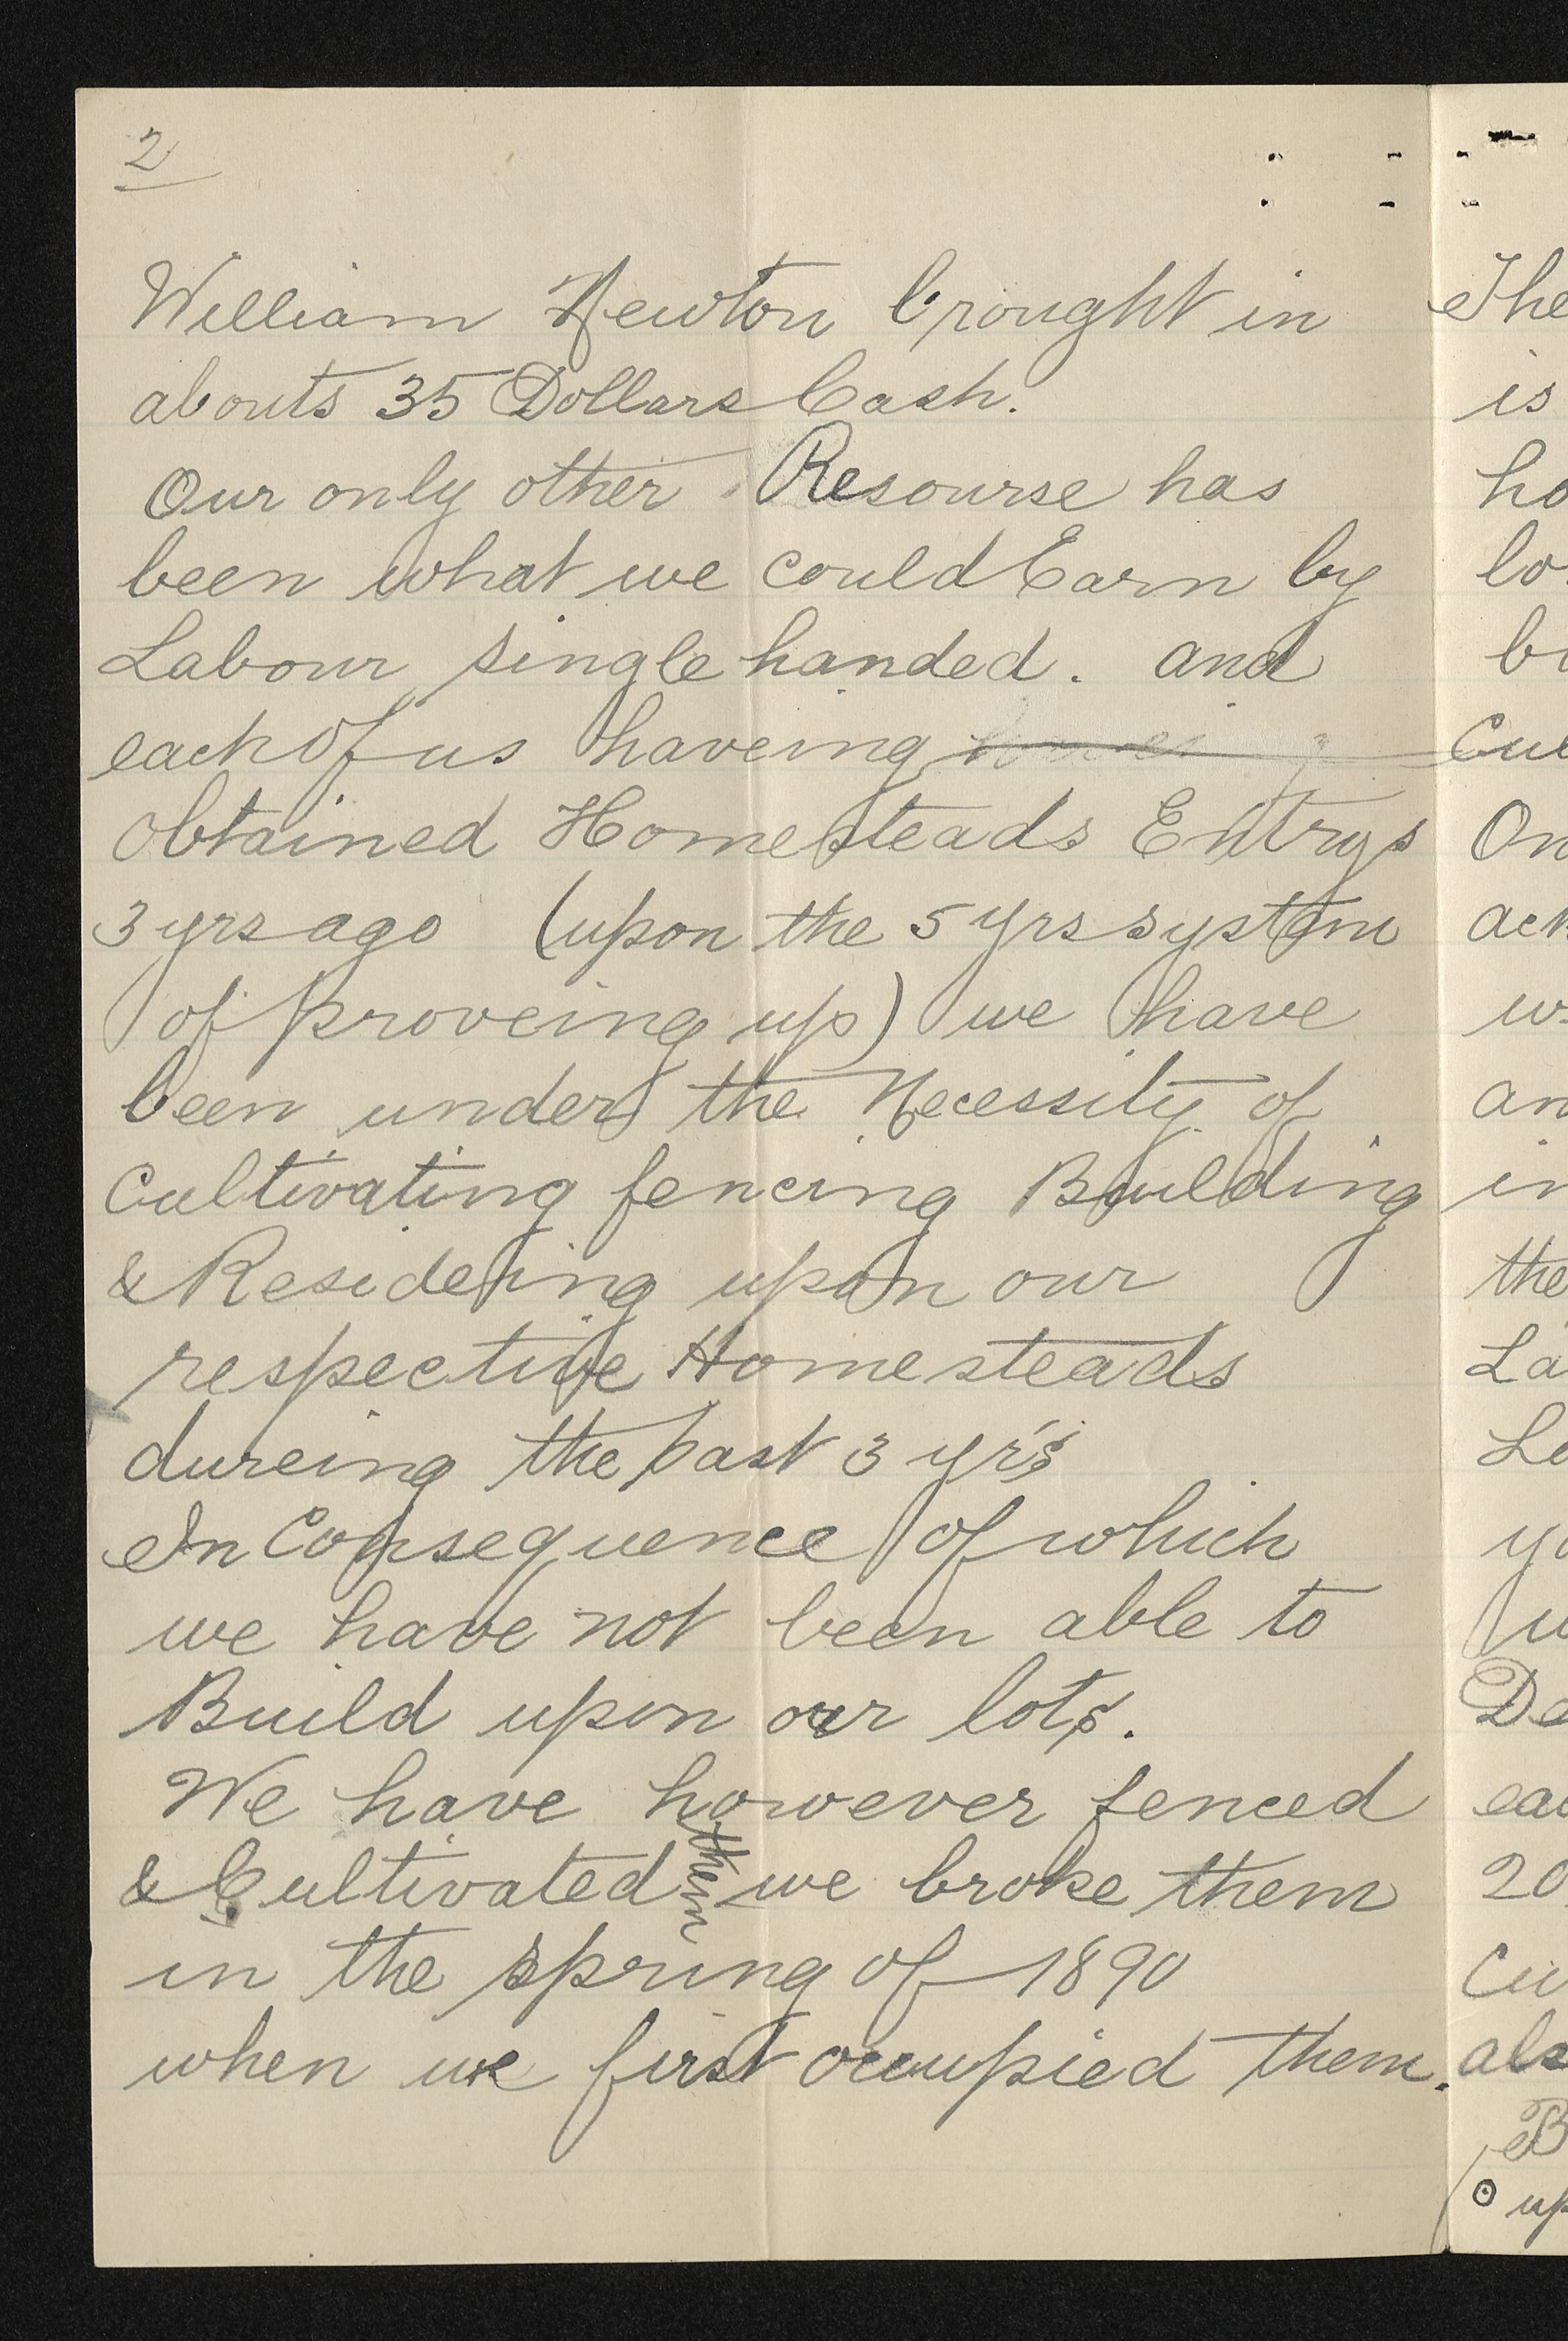 2
William Newton brought in
abouts 35 Dollars Cash.
Our only other Resourse has
been what we could Earn by
Labour single handed. and
each of us haveing
obtained Homesteads Entrys
3 yrs ago (upon the 5 yrs system
of proveing up) we have
been under the Necessity of
Cultivating fencing Building
& Resideing upon our
respective Homesteads
dureing the past 3 yr's
In Consequence of which
we have not been able to
Build upon our lots.
We have however fenced
& Cultivated them we broke them
in the spring of 1890
when we first occupied them.
The
is
ho
lo
b
Cul
On
ack
w
an
in
the
La
Le
yo
w
De
eac
20
Cu
als
B
up